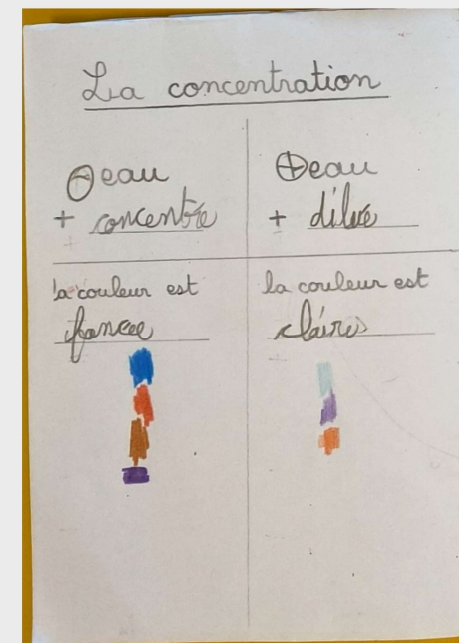 La concentration
⊖ eau
+ concentré
⊕ eau
+ dilué
la couleur est
foncée
la couleur est
claire